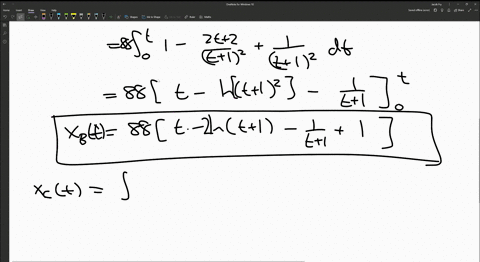 =88∫₀ᵗ 1 - (2t+2)/(t+1)² + 1/(t+1)² dt
= 88[ t - ln[(t+1)²] - 1/(t+1) ]₀ᵗ
x_B(t) = 88[ t - 2ln(t+1) - 1/(t+1) + 1 ]
x_C(t) = ∫